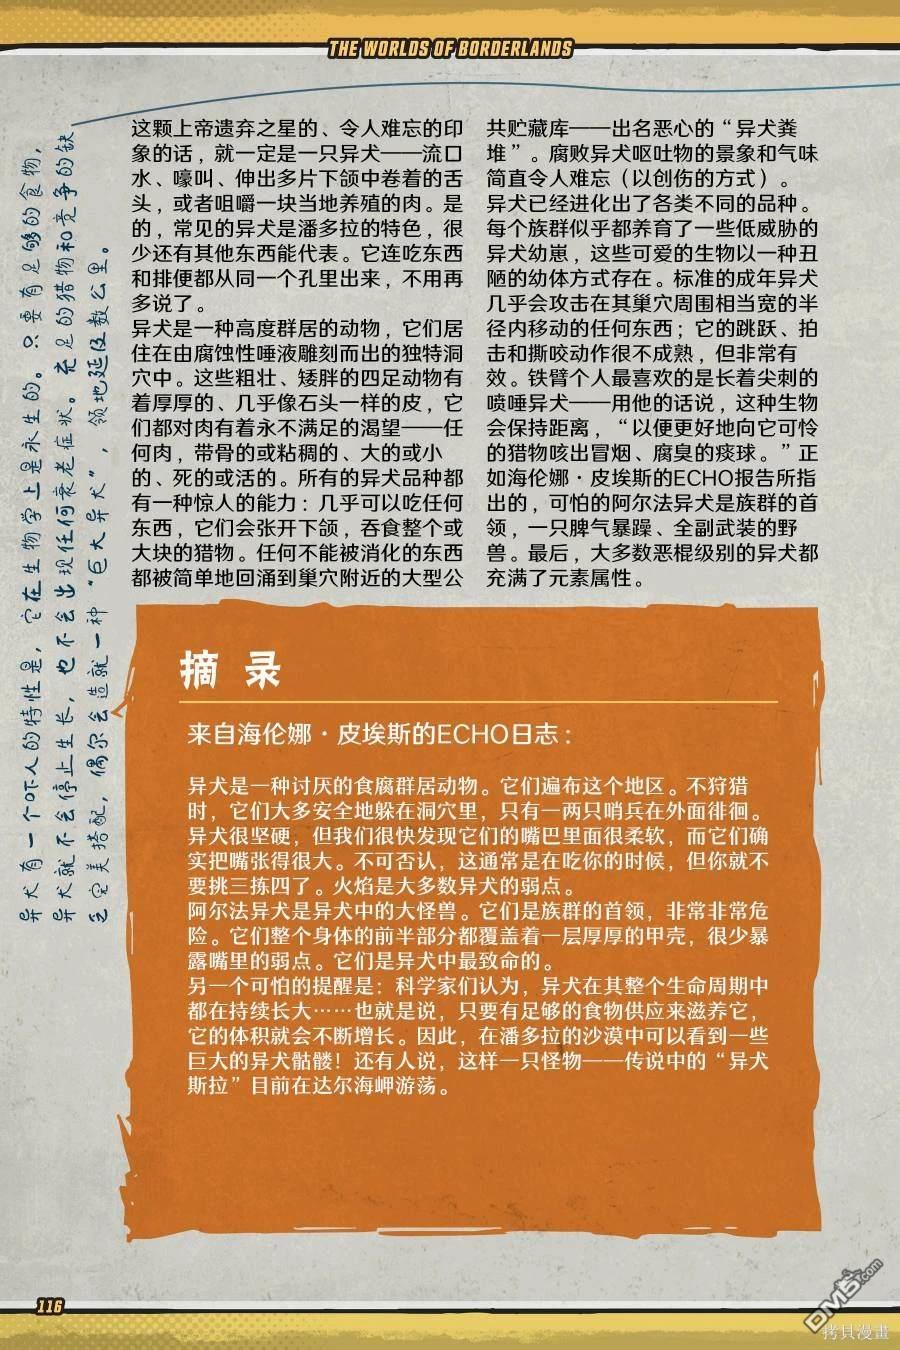 THE WORLDS OF BORDERLANDS
这颗上帝遗弃之星的、令人难忘的印
象的话，就一定是一只异犬——流口
水、嚎叫、伸出多片下颌中卷着的舌
头，或者咀嚼一块当地养殖的肉。是
的，常见的异犬是潘多拉的特色，很
少还有其他东西能代表。它连吃东西
和排便都从同一个孔里出来，不用再
多说了。
异犬是一种高度群居的动物，它们居
住在由腐蚀性唾液雕刻而出的独特洞
穴中。这些粗壮、矮胖的四足动物有
着厚厚的、几乎像石头一样的皮，它
们都对肉有着永不满足的渴望——任
何肉，带骨的或粘稠的、大的或小
的、死的或活的。所有的异犬品种都
有一种惊人的能力：几乎可以吃任何
东西，它们会张开下颌，吞食整个或
大块的猎物。任何不能被消化的东西
都被简单地回涌到巢穴附近的大型公
共贮藏库——出名恶心的“异犬粪
堆”。腐败异犬呕吐物的景象和气味
简直令人难忘（以创伤的方式）。
异犬已经进化出了各类不同的品种。
每个族群似乎都养育了一些低威胁的
异犬幼崽，这些可爱的生物以一种丑
陋的幼体方式存在。标准的成年异犬
几乎会攻击在其巢穴周围相当宽的半
径内移动的任何东西；它的跳跃、拍
击和撕咬动作很不成熟，但非常有
效。铁臂个人最喜欢的是长着尖刺的
喷唾异犬——用他的话说，这种生物
会保持距离，“以便更好地向它可怜
的猎物咳出冒烟、腐臭的痰球。”正
如海伦娜·皮埃斯的ECHO报告所指
出的，可怕的阿尔法异犬是族群的首
领，一只脾气暴躁、全副武装的野
兽。最后，大多数恶棍级别的异犬都
充满了元素属性。
异犬有一个吓人的特性是，它在生物学上是永生的。只要有足够的食物，
异犬就不会停止生长，也不会出现任何衰老症状。充足的猎物和竞争的缺
乏完美搭配，偶尔会造就一种“巨大异犬”，领地延及数公里。
摘 录
来自海伦娜·皮埃斯的ECHO日志：
异犬是一种讨厌的食腐群居动物。它们遍布这个地区。不狩猎
时，它们大多安全地躲在洞穴里，只有一两只哨兵在外面徘徊。
异犬很坚硬，但我们很快发现它们的嘴巴里面很柔软，而它们确
实把嘴张得很大。不可否认，这通常是在吃你的时候，但你就不
要挑三拣四了。火焰是大多数异犬的弱点。
阿尔法异犬是异犬中的大怪兽。它们是族群的首领，非常非常危
险。它们整个身体的前半部分都覆盖着一层厚厚的甲壳，很少暴
露嘴里的弱点。它们是异犬中最致命的。
另一个可怕的提醒是：科学家们认为，异犬在其整个生命周期中
都在持续长大……也就是说，只要有足够的食物供应来滋养它，
它的体积就会不断增长。因此，在潘多拉的沙漠中可以看到一些
巨大的异犬骷髅！还有人说，这样一只怪物——传说中的“异犬
斯拉”目前在达尔海岬游荡。
116
DM5.com
拷貝漫畫